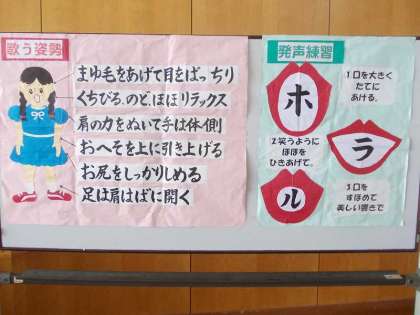 歌う姿勢
まゆ毛をあげて目をぱっちり
くちびる、のど、ほほリラックス
肩の力をぬいて手は体側
おへそを上に引き上げる
お尻をしっかりしめる
足は肩はばに開く
発声練習
ホ
1口を大きく
たてに
あける。
2笑うように
ほほを
ひきあげて。
ラ
ル
3口を
すぼめて
美しい響きで